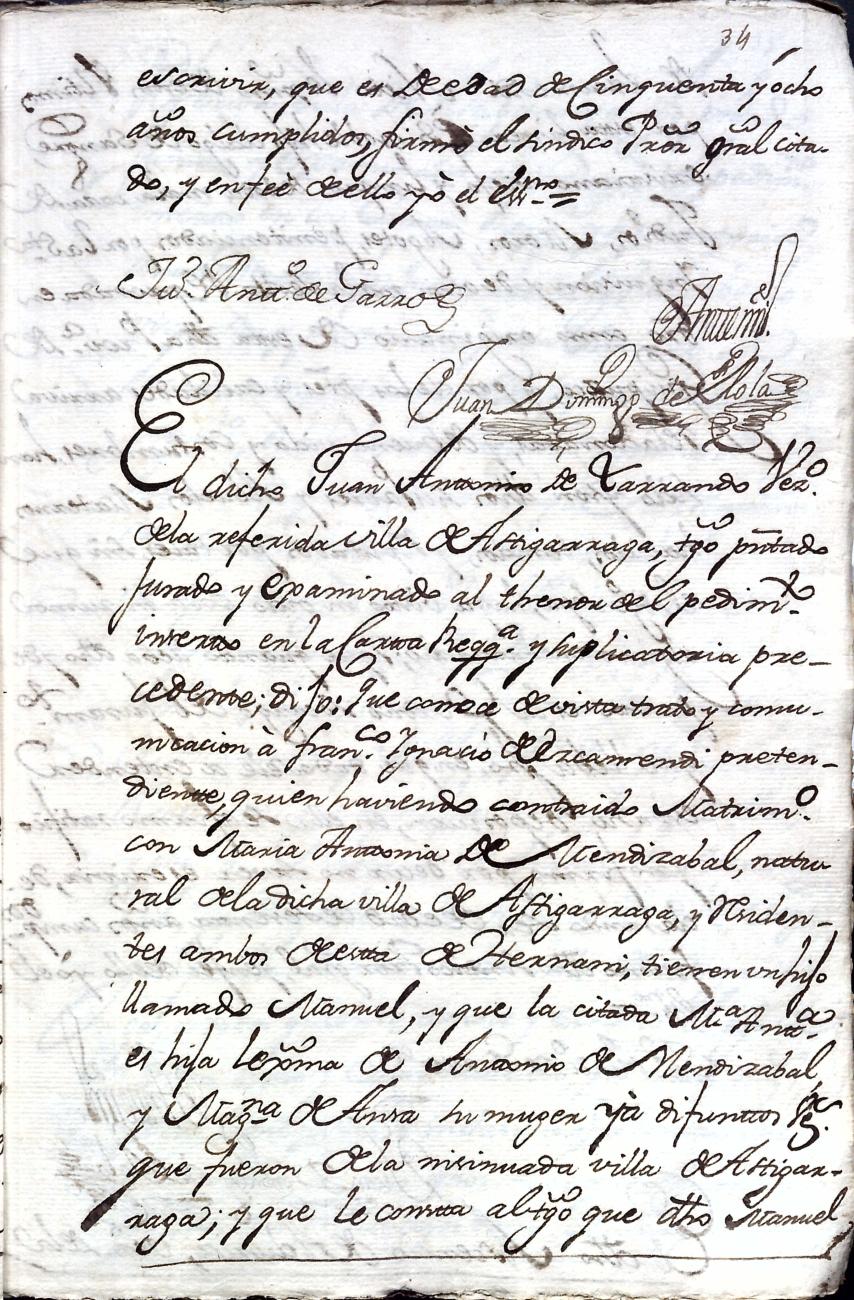 34
escrivir, que es de edad de Cinquenta y ócho
años cumplidos, firmò el sindico Pror. gral cita-
do, y en feè de ello yò el Essno =
Jun. Antt.o de Garro
Antemi
Juan Domingo de
El dicho Juan Antonio de Larrando Vez.o
de la referida villa de Astigarraga, tgo pntado
Jurado y examinado al thenor del pedim.to
inserto en la Carta Reqq.a y suplicatoria pre-
cedente; dijo: Que conoce de vista trato y comu-
nicacion à fran.co Ignacio de Urcamendi preten-
diente, quien haviendo contraido Matrim.o
con Maria Antonia de Mendizabal, natu
ral de la dicha villa de Astigarraga, y residen-
tes ambos de estta de Hernani, tienen un hijo
llamado Manuel, y que la citada M.a Antt.a
es hija lexma de Antonio de Mendizabal,
y Mag.na de Ansa su muger yà difunttos
que fueron de la nisinuada villa de Astigar-
raga; y que le constta al tgo que dho Manuel